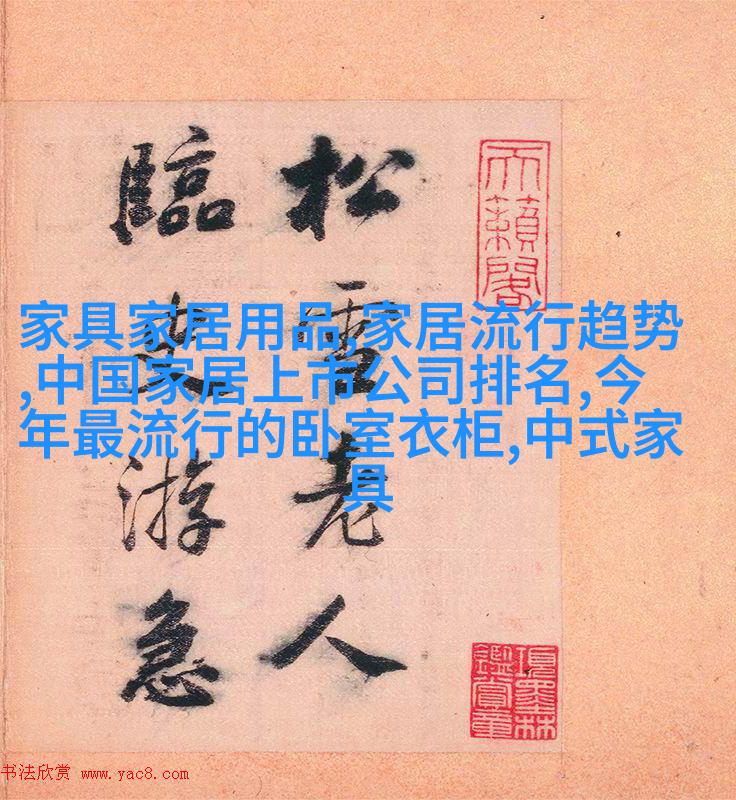 天籟閣
松雪老人
臨史游急
項墨林
鑑賞章
家具家居用品,家居流行趋势
,中国家居上市公司排名,今
年最流行的卧室衣柜,中式家
具
书法欣赏 www.yac8.com